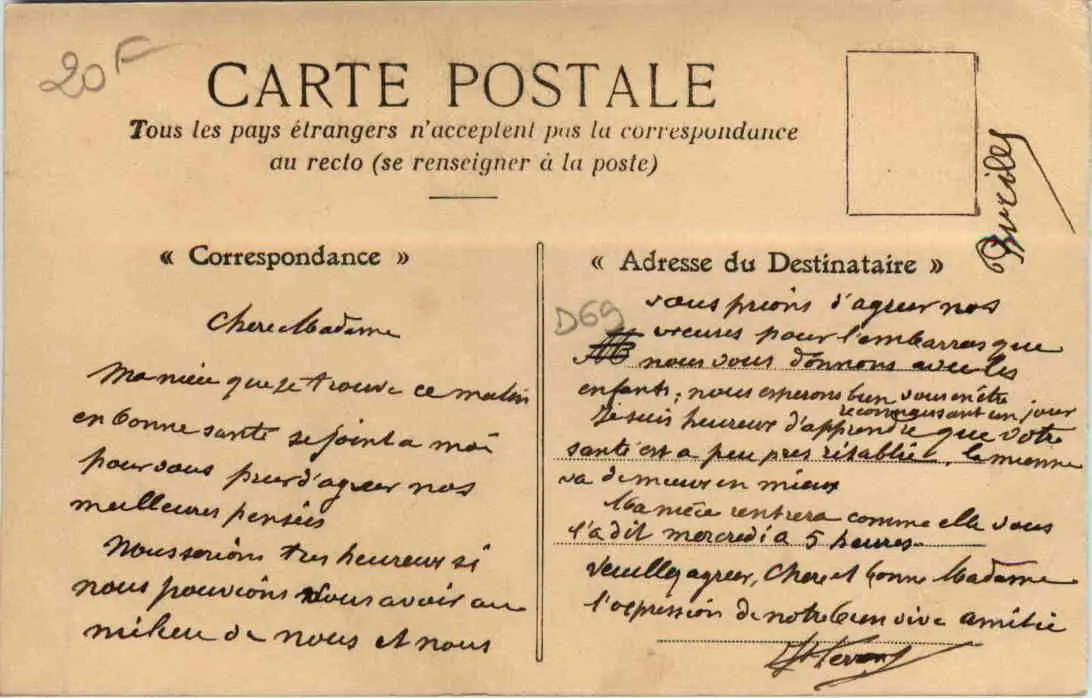 20F
CARTE POSTALE
Tous les pays étrangers n'acceptent pas la correspondance
au recto (se renseigner à la poste)
« Correspondance »
Chere Madame
Ma niece que je trouve ce matin
en bonne santé se joint a moi
pour vous prier d'agreer nos
meilleures pensées
Nous serions tres heureux si
nous pouvions vous avoir au
milieu de nous et nous
« Adresse du Destinataire »
D69
vous prions d'agreer nos
excuses pour l'embarras que
nous vous donnons avec les
enfants; nous esperons bien vous en être
reconnaissant un jour
Je suis heureux d'apprendre que votre
santé est a peu pres rétablie, la mienne
va de mieux en mieux
Ma niece rentrera comme elle vous
l'a dit mercredi a 5 heures.
Veuillez agreer, Chere et bonne Madame
l'expression de notre bien vive amitié